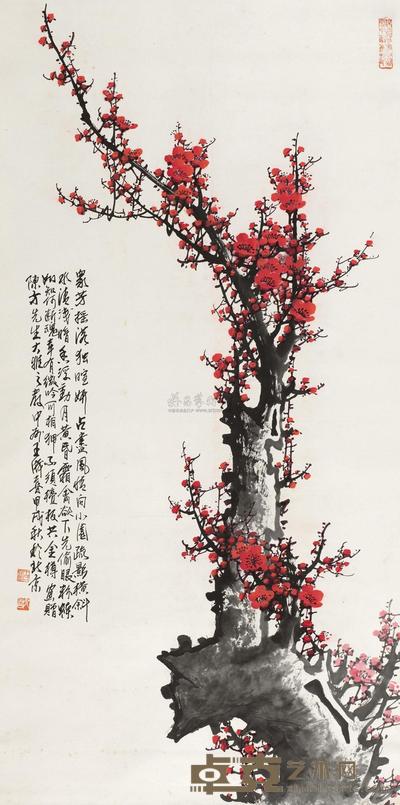 眾芳搖落獨喧妍占盡風情向小園疏影橫斜
水清淺暗香浮動月黃昏霜禽欲下先偷眼粉蝶
如知合斷魂幸有微吟可相狎不須檀板共金樽寫贈
陳方先生大雅之屬中州王成喜甲戌秋於北京
卓克艺术网